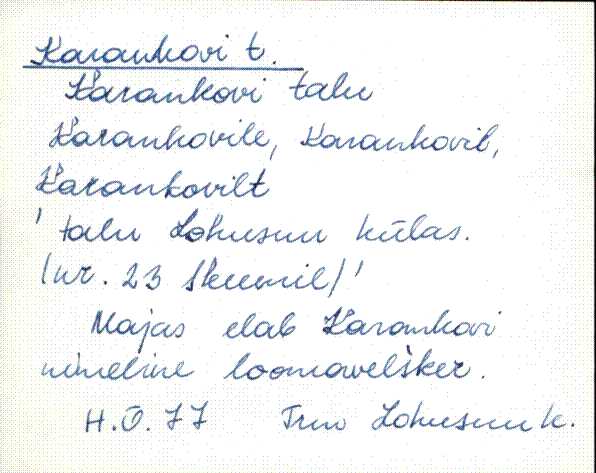 Karankovi t.
Karankovi talu
Karankovile, Karankovil,
Karankovilt
' talu Lohusuu külas.
(nr. 23 skeemil)'
Majas elab Karankovi
nimeline loomavelšker.
H.O. 77 Trm Lohusuu k.